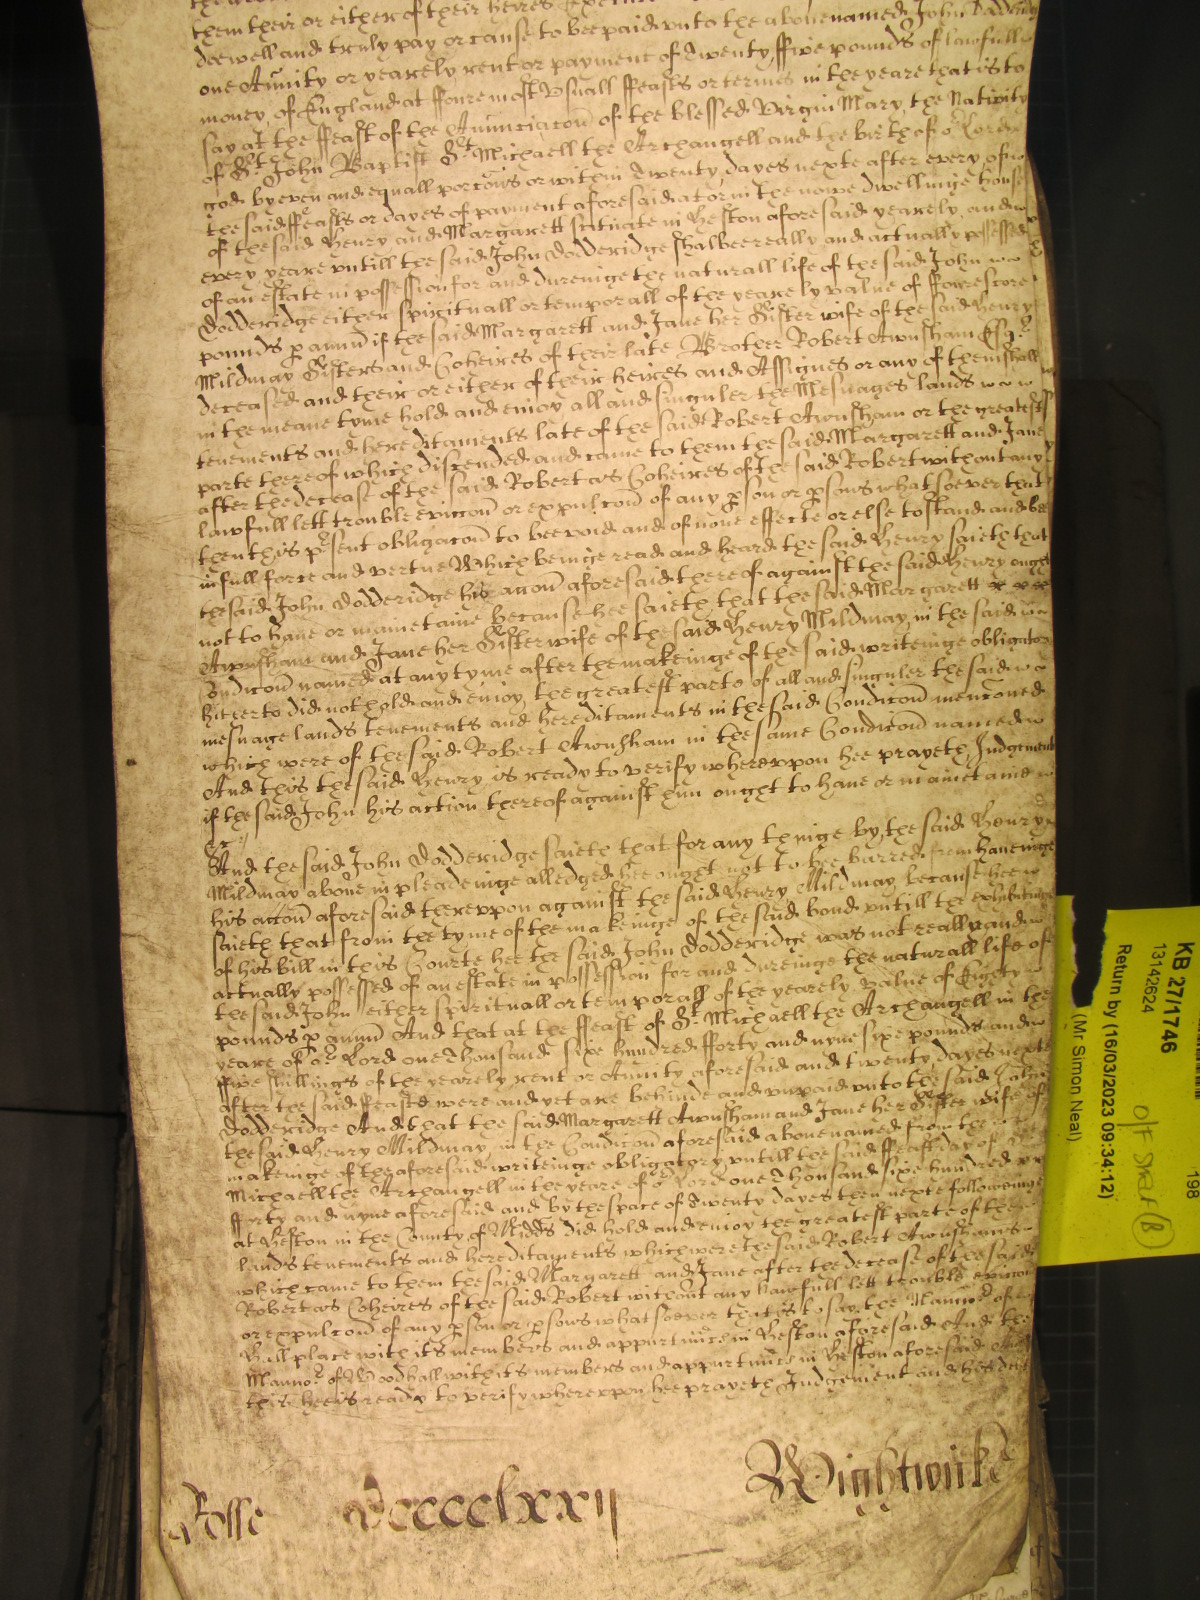 them their or either of their heires
doe well and truly pay or cause to bee paid unto the abovenamed John Dodderidge
one Anuity or yearely rent or payment of Twenty ffive pounds of lawfull
money of England at ffoure most Usuall ffeasts or termes in the yeare that is to
say at the ffeast of the Anunciacon of the blessed Virgin Mary the Nativity
of St John Baptist St Michaell the Archangell and the birth of or Lord
god by even and equall porcons or within Twenty dayes nexte after every of
the said ffeasts or dayes of payment aforesaid at or in the nowe dwellinge house
of the said Henry and Margarett scituate in Heston aforesaid yearely and
every yeare untill the said John Dodderidge shalbee really and actually possessed
of an estate in possession for and dureinge the naturall life of the said John
Dodderidge either spirituall or temporall of the yearely value of ffourescore
pounds p annu if the said Margarett and Jane her Sister wife of the said Henry
Mildmay Sisters and Coheires of their late Brother Robert Awnsham Esqr
deceased and their or either of their heires and Assignes or any of them shall
in the meane tyme hold and enioy all and singuler the Mesuages lands
tenements and hereditaments late of the said Robert Awnsham or the greatest
parte thereof which discended and came to them the said Margarett and Jane
after the decease of the said Robert as Coheires of the said Robert without any
lawfull lett trouble eviccon or expulcon of any pson or psons whatsoever that
then this psent obligacon to bee void and of none effecte or else to stand and bee
in full force and vertue Which beinge read and heard the said Henry saieth that
the said John Dodderidge his accon aforesaid thereof against the said Henry ought
not to have or mainetaine because hee saieth that the said Margarett
Awnsham and Jane her Sister wife of the said Henry Mildmay in the said
Condicon named at any tyme after the makeinge of the said writeinge obligatory
hitherto did not hold and enioy the greatest parte of all and singuler the said
mesuage lands tenements and hereditaments in the said Condicon menconed
which were of the said Robert Awnsham in the same Condicon named
And this the said Henry is ready to verify whereuppon hee prayeth Judgement
if the said John his action thereof against him ought to have or mainetaine
&c:
And the said John Dodderidge saieth that for any thinge by the said Henry
Mildmay above in pleadeinge alledged hee ought not to bee barred from haveinge
his accon aforesaid thereuppon against the said Henry Mildmay because hee
saieth that from the tyme of the makeinge of the said bond untill the exhibiteinge
of his bill in this Courte hee the said John Dodderidge was not really and
actually possessed of an estate in possession for and dureinge the naturall life of
the said John either spirituall or temporall of the yearely value of Eighty
pounds p annu And that at the ffeast of St Michaell the Archangell in the
yeare of or Lord one Thousand sixe hundred fforty and nyne sixe pounds and
ffive shillings of the yearely rent or Anuity aforesaid and twenty dayes nexte
after the said ffeaste were and yet are behinde and unpaid unto the said John
Dodderidge And that the said Margarett Awnsham and Jane her Sister wife of
the said Henry Mildmay in the Condicon aforesaid abovenamed from the
makeinge of the aforesaid writeinge obligatory untill the said ffeast day of St
Michaell the Archangell in the yeare of or Lord one Thousand sixe hundred
fforty and nyne aforesaid and by the space of Twenty dayes then nexte followeinge
at Heston in the County of Midds did hold and enioy the greatest parte of the
lands tenements and hereditaments which were the said Robert Awnshams
which came to them the said Margarett and Jane after the decease of the said
Robert as Coheires of the said Robert without any lawfull lett trouble eviccon
or expulcon of any pson or psons whatsoever that is to say the Mannor of
Hall place with its members and appurtnncs in Heston aforesaid And the
Mannor of Woodhall with its members and appurtnncs in Heston aforesaid And
this hee is ready to verify whereuppon hee prayeth Judgement and his
Rosse Dccccclxxij Wightwicke
KB 27/1746
13142624
Return by (16/03/2023 09:34:12)
(Mr Simon Neal)
O/F Shelf (B)
198